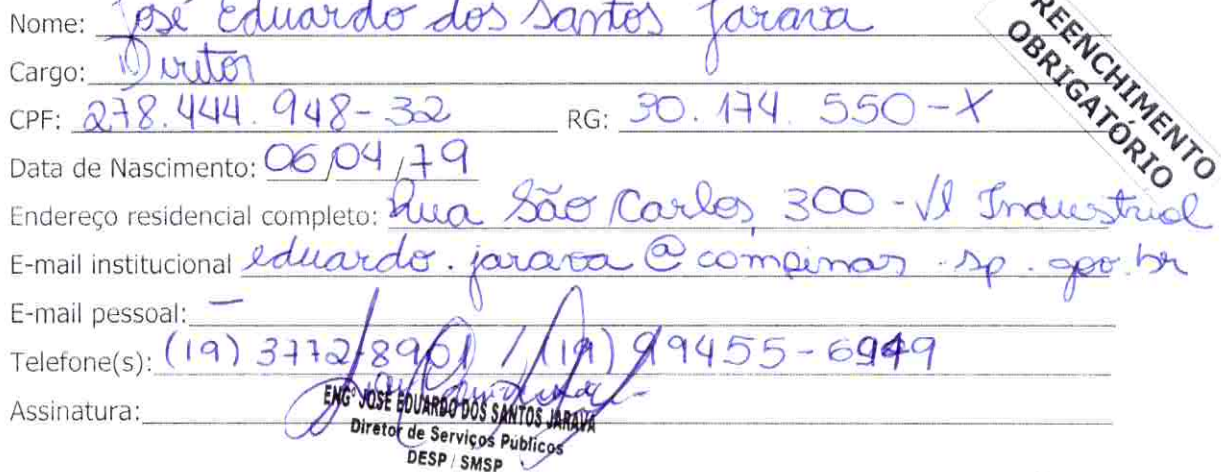 Nome: José Eduardo dos Santos Jarava
PREENCHIMENTO
OBRIGATÓRIO
Cargo: Diretor
CPF: 278.444.948-32 RG: 30.174.550-X
Data de Nascimento: 06/04/79
Endereço residencial completo: Rua São Carlos, 300 - Vl Industrial
E-mail institucional eduardo.jarava@campinas.sp.gov.br
E-mail pessoal: —
Telefone(s): (19) 3772-8901 / (19) 99455-6949
Assinatura:
ENGº JOSÉ EDUARDO DOS SANTOS JARAVA
Diretor de Serviços Públicos
DESP / SMSP